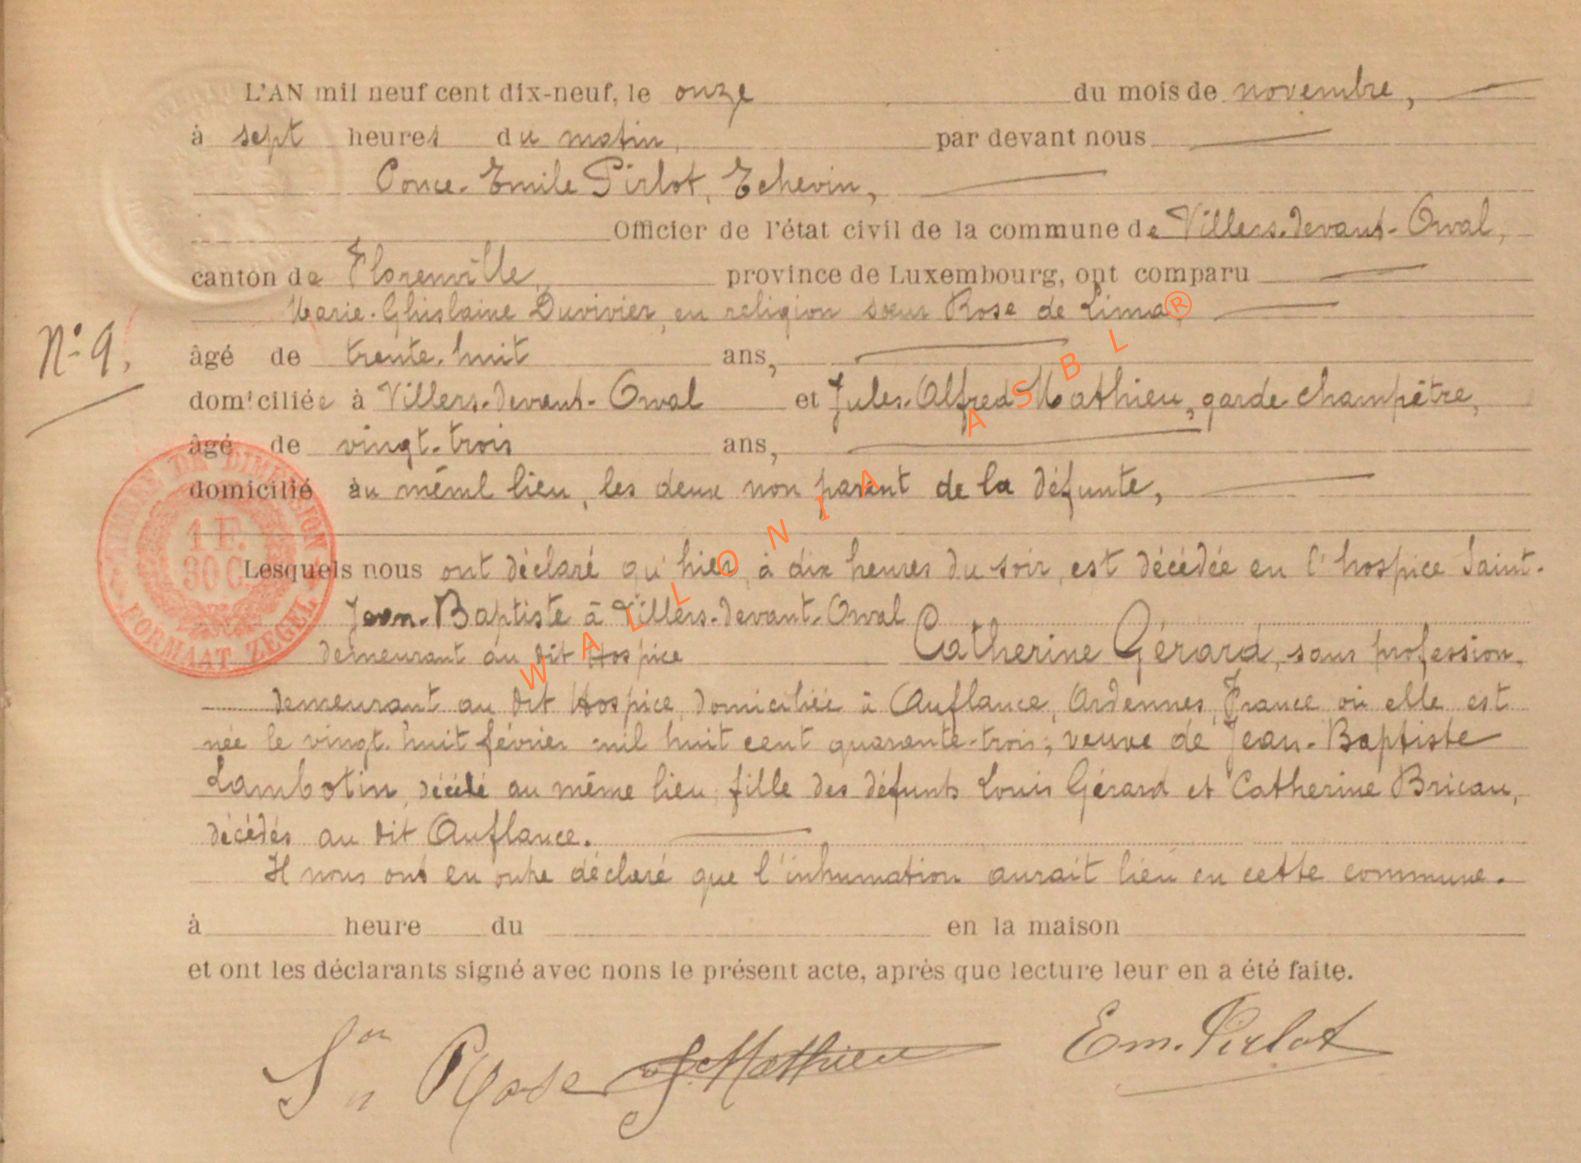 L'AN mil neuf cent dix-neuf, le onze du mois de novembre,
à sept heures du matin, par devant nous
Ponce-Emile Pirlot, Echevin,
Officier de l'état civil de la commune de Villers-devant-Orval,
canton de Florenville, province de Luxembourg, ont comparu
Marie-Ghislaine Duvivier, en religion sœur Rose de Lima,
N° 9.
âgé de trente-huit ans,
domiciliée à Villers-devant-Orval et Jules-Alfred Mathieu, garde champêtre,
âgé de vingt-trois ans,
domicilié au même lieu, les deux non parent de la défunte,
Lesquels nous ont déclaré qu'hier, à dix heures du soir, est décédée en l'hospice Saint-
Jean-Baptiste à Villers-devant-Orval
demeurant au dit Hospice Catherine Gérard, sans profession,
demeurant au dit Hospice, domiciliée à Auflance, Ardennes, France où elle est
née le vingt-huit février mil huit cent quarante-trois, veuve de Jean-Baptiste
Lambotin, décédé au même lieu, fille des défunts Louis Gérard et Catherine Bricau,
décédés au dit Auflance.
Il nous ont en outre déclaré que l'inhumation aurait lieu en cette commune.
à heure du en la maison
et ont les déclarants signé avec nous le présent acte, après que lecture leur en a été faite.
Sr Rose J. Mathieu Em. Pirlot
TIMBRE DE DIMENSION
1 F.
30 C.
FORMAAT ZEGEL
WALLONIA ASBL®